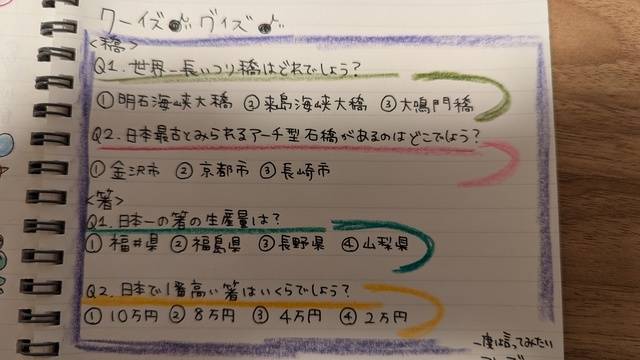 クーイズ クイズ
<橋>
Q1. 世界一長いつり橋はどれでしょう?
①明石海峡大橋 ②来島海峡大橋 ③大鳴門橋
Q2. 日本最古とみられるアーチ型石橋があるのはどこでしょう?
① 金沢市 ② 京都市 ③ 長崎市
<箸>
Q1. 日本一の箸の生産量は?
① 福井県 ② 福島県 ③ 長野県 ④ 山梨県
Q2. 日本で1番高い箸はいくらでしょう?
① 10万円 ② 8万円 ③ 4万円 ④ 2万円
一度は言ってみたい